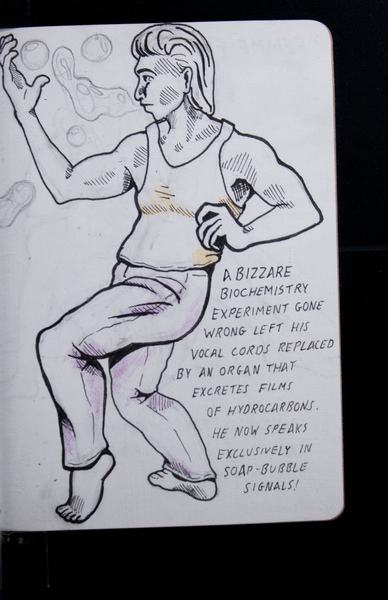 A BIZZARE
BIOCHEMISTRY
EXPERIMENT GONE
WRONG LEFT HIS
VOCAL CORDS REPLACED
BY AN ORGAN THAT
EXCRETES FILMS
OF HYDROCARBONS.
HE NOW SPEAKS
EXCLUSIVELY IN
SOAP-BUBBLE
SIGNALS!